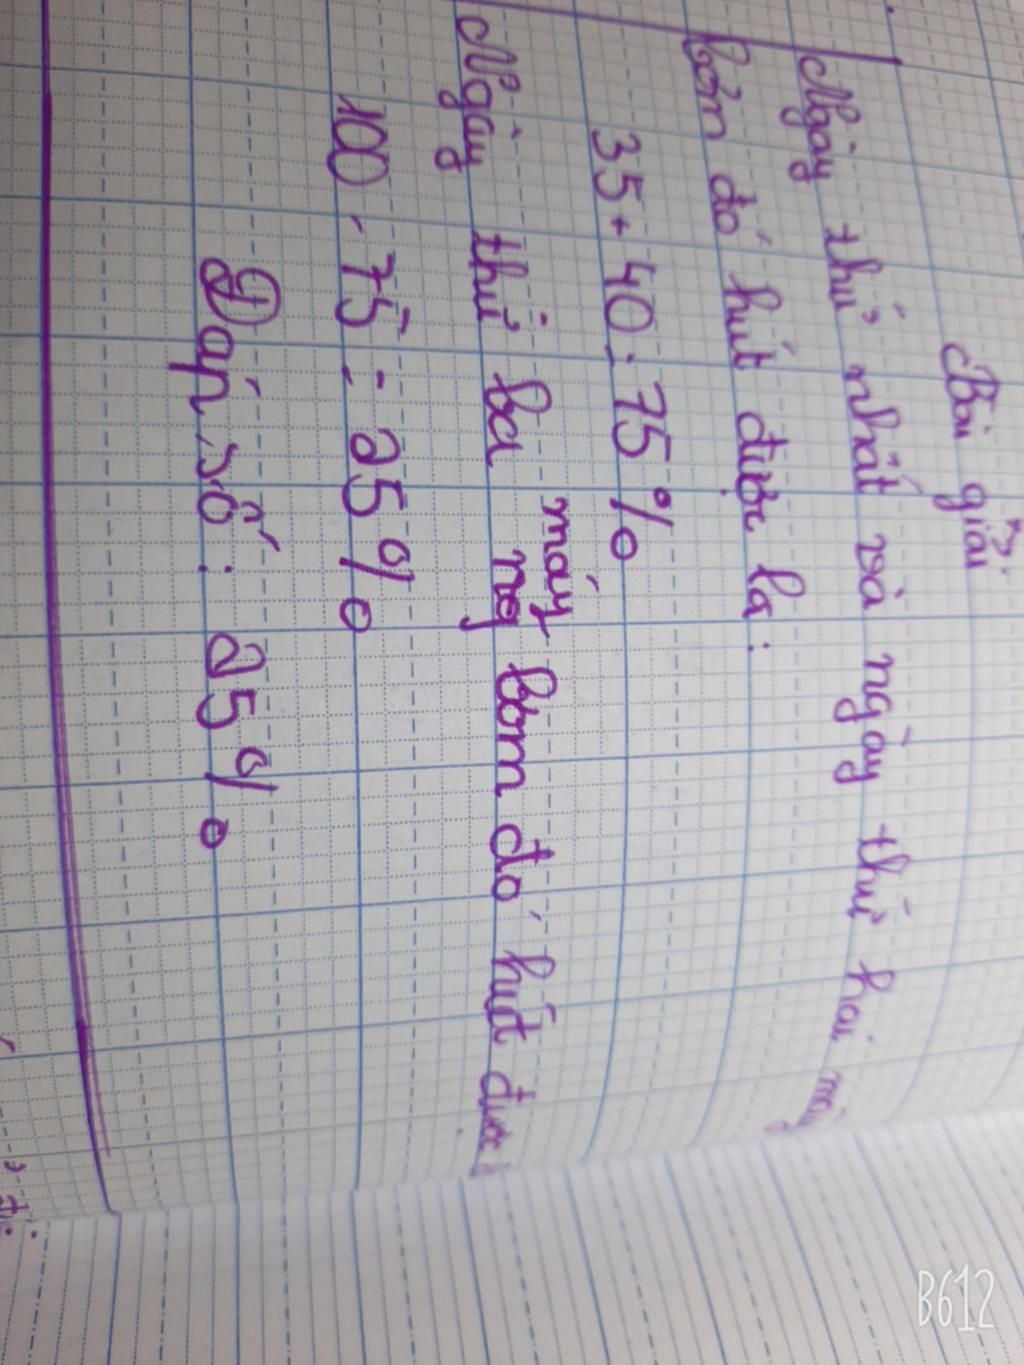 Bài giải
Ngày thứ nhất và ngày thứ hai máy
bơm đó hút được là:
35 + 40 = 75 %
máy
Ngày thứ ba bơm đó hút được
100 - 75 = 25 %
Đáp số: 25 %
B612